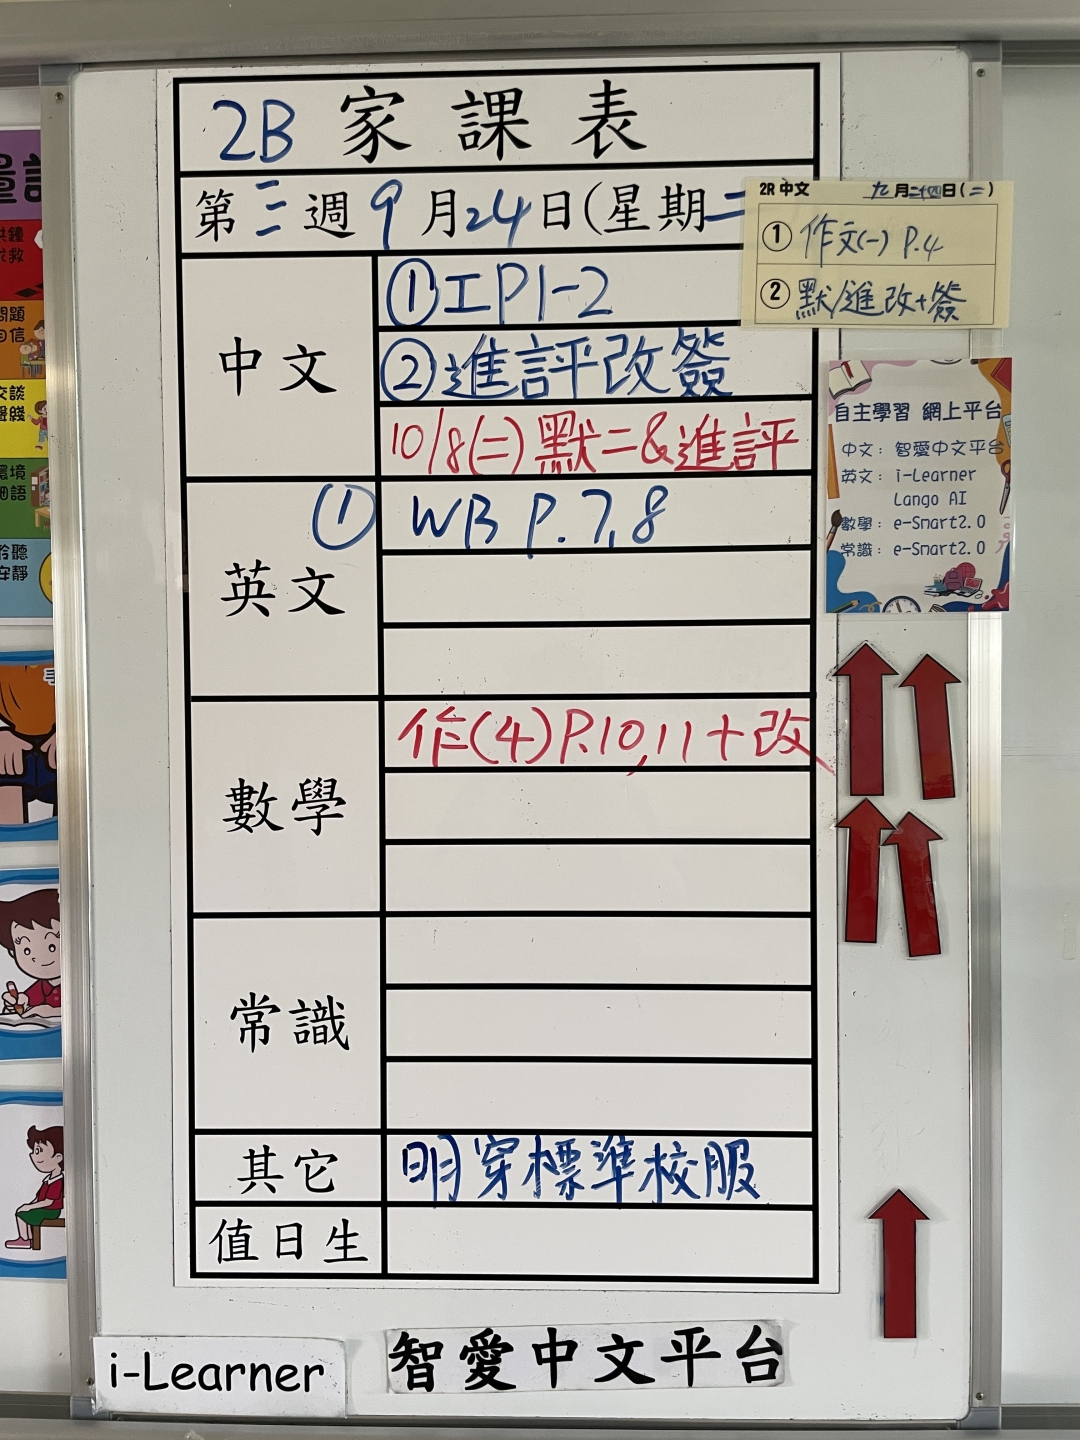 2B 家課表
第三週 9月24日(星期二
中文
①工P1-2
②進評改簽
10/8(二)默二&進評
英文
① WB P.7,8
數學
作(4)P.10,11+改
常識
其它
明穿標準校服
值日生
i-Learner
智愛中文平台
2R 中文 九月二十四日(二)
① 作文(一) P.4
② 默/進改+簽
自主學習 網上平台
中文：智愛中文平台
英文：i-Learner
Lango AI
數學：e-Smart2.0
常識：e-Smart2.0